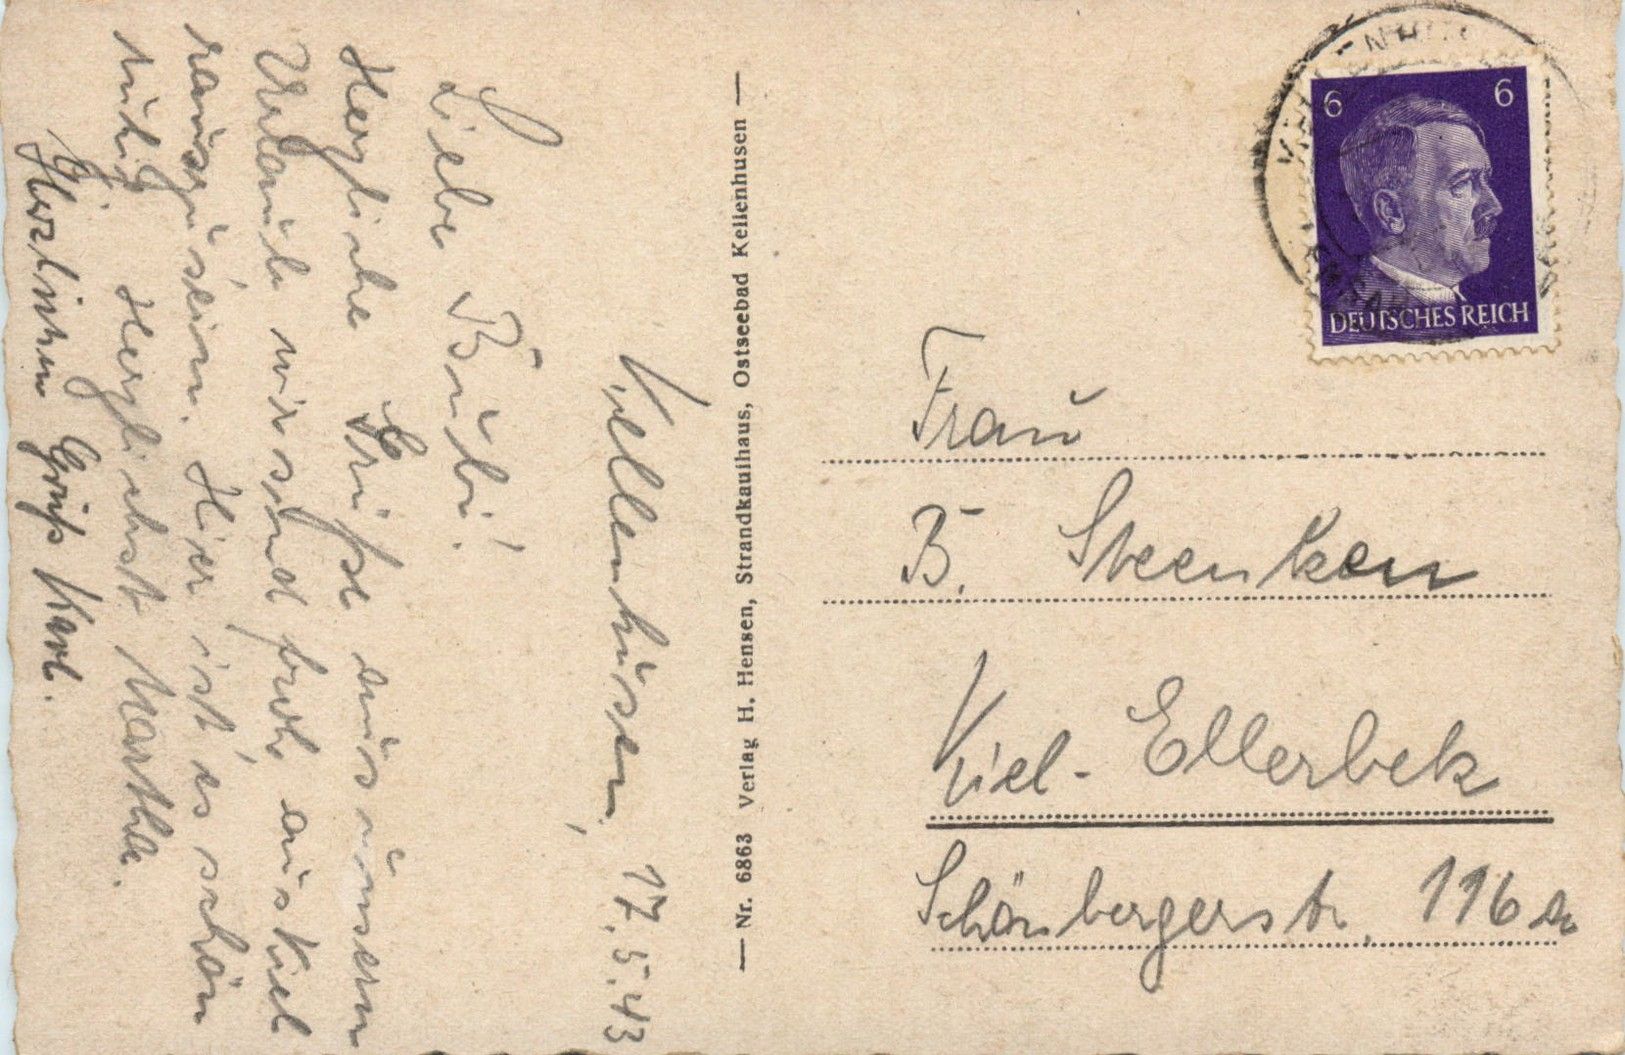 Kellenhusen, 17.5.43
Liebe Bubi!
Herzliche Grüße aus unserm
Urlaub wir sind froh aus Kiel
rauszusein. Hier ist es schön
ruhig Herzlichst Martha.
Herzlichen Gruß Karl.
— Nr. 6863 Verlag H. Hensen, Strandkaufhaus, Ostseebad Kellenhusen —
6 6
DEUTSCHES REICH
Frau
B. Steenken
Kiel-Ellerbek
Schönbergerstr. 116a